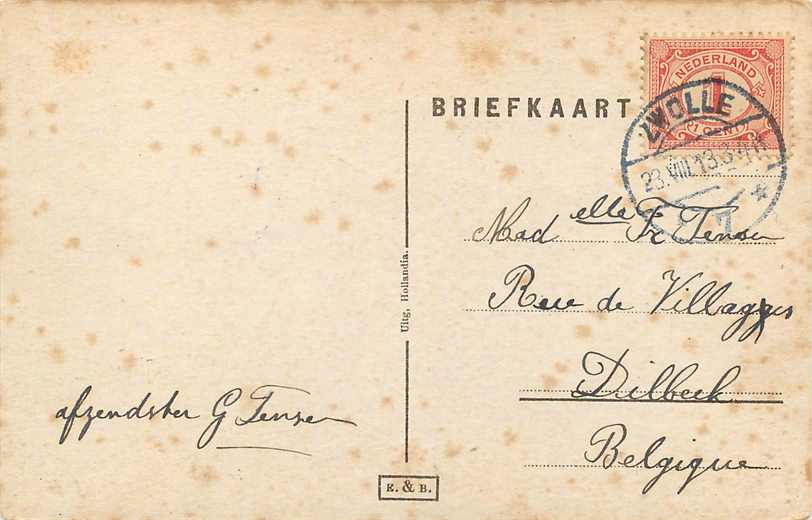 BRIEFKAART
NEDERLAND
1
1 CENT
ZWOLLE
23.VIII.13.
1
Mad elle Fr Tensen
Rue de Villagges
Dilbeek
Belgique
Uitg. Hollandia.
afzendster G Tensen
E. & B.